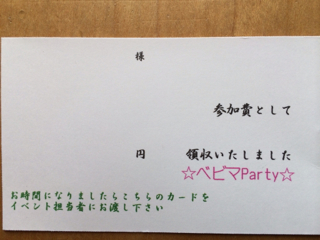 様
参加費として
円 領収いたしました
☆ベビマParty☆
お時間になりましたらこちらのカードを
イベント担当者にお渡し下さい